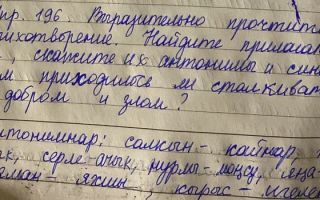 пр. 196. Выразительно прочтит
ихотворение. Найдите прилага
, скажите их антонимы и син
м приходилось ли сталкиват
добром и злом?
тонимнар: салкын – кайнар,
ык, серле-ачык, нурлы-моңсу, яңа-
яман – яхшы, кырыс – игелек